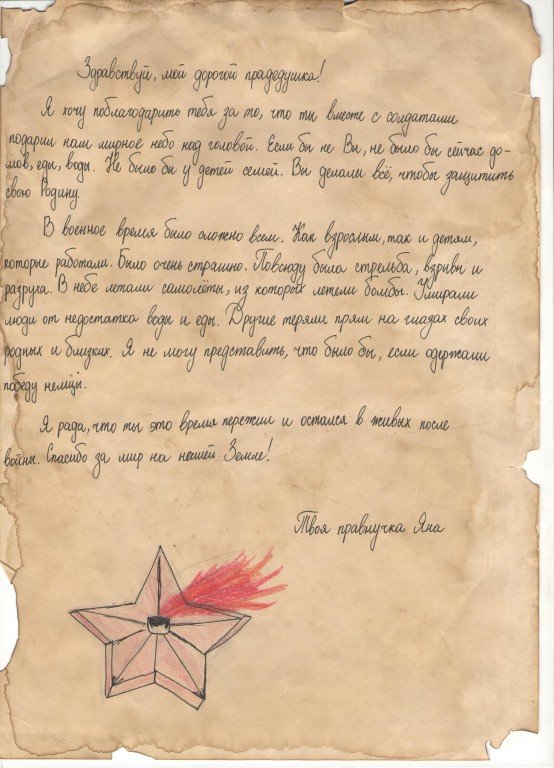 Здравствуй, мой дорогой прадедушка!
Я хочу поблагодарить тебя за то, что ты вместе с солдатами
подарил нам мирное небо над головой. Если бы не Вы, не было бы сейчас до-
мов, еды, воды. Не было бы у детей семей. Вы делали всё, чтобы защитить
свою Родину.
В военное время было сложно всем. Как взрослым, так и детям,
которые работали. Было очень страшно. Повсюду была стрельба, взрывы и
разруха. В небе летали самолёты, из которой летели бомбы. Умирали
люди от недостатка воды и еды. Другие теряли прям на глазах своих
родных и близких. Я не могу представить, что было бы, если одержали
победу немцы.
Я рада, что ты это время пережил и остался в живых после
войны. Спасибо за мир на нашей Земле!
Твоя правнучка Яна